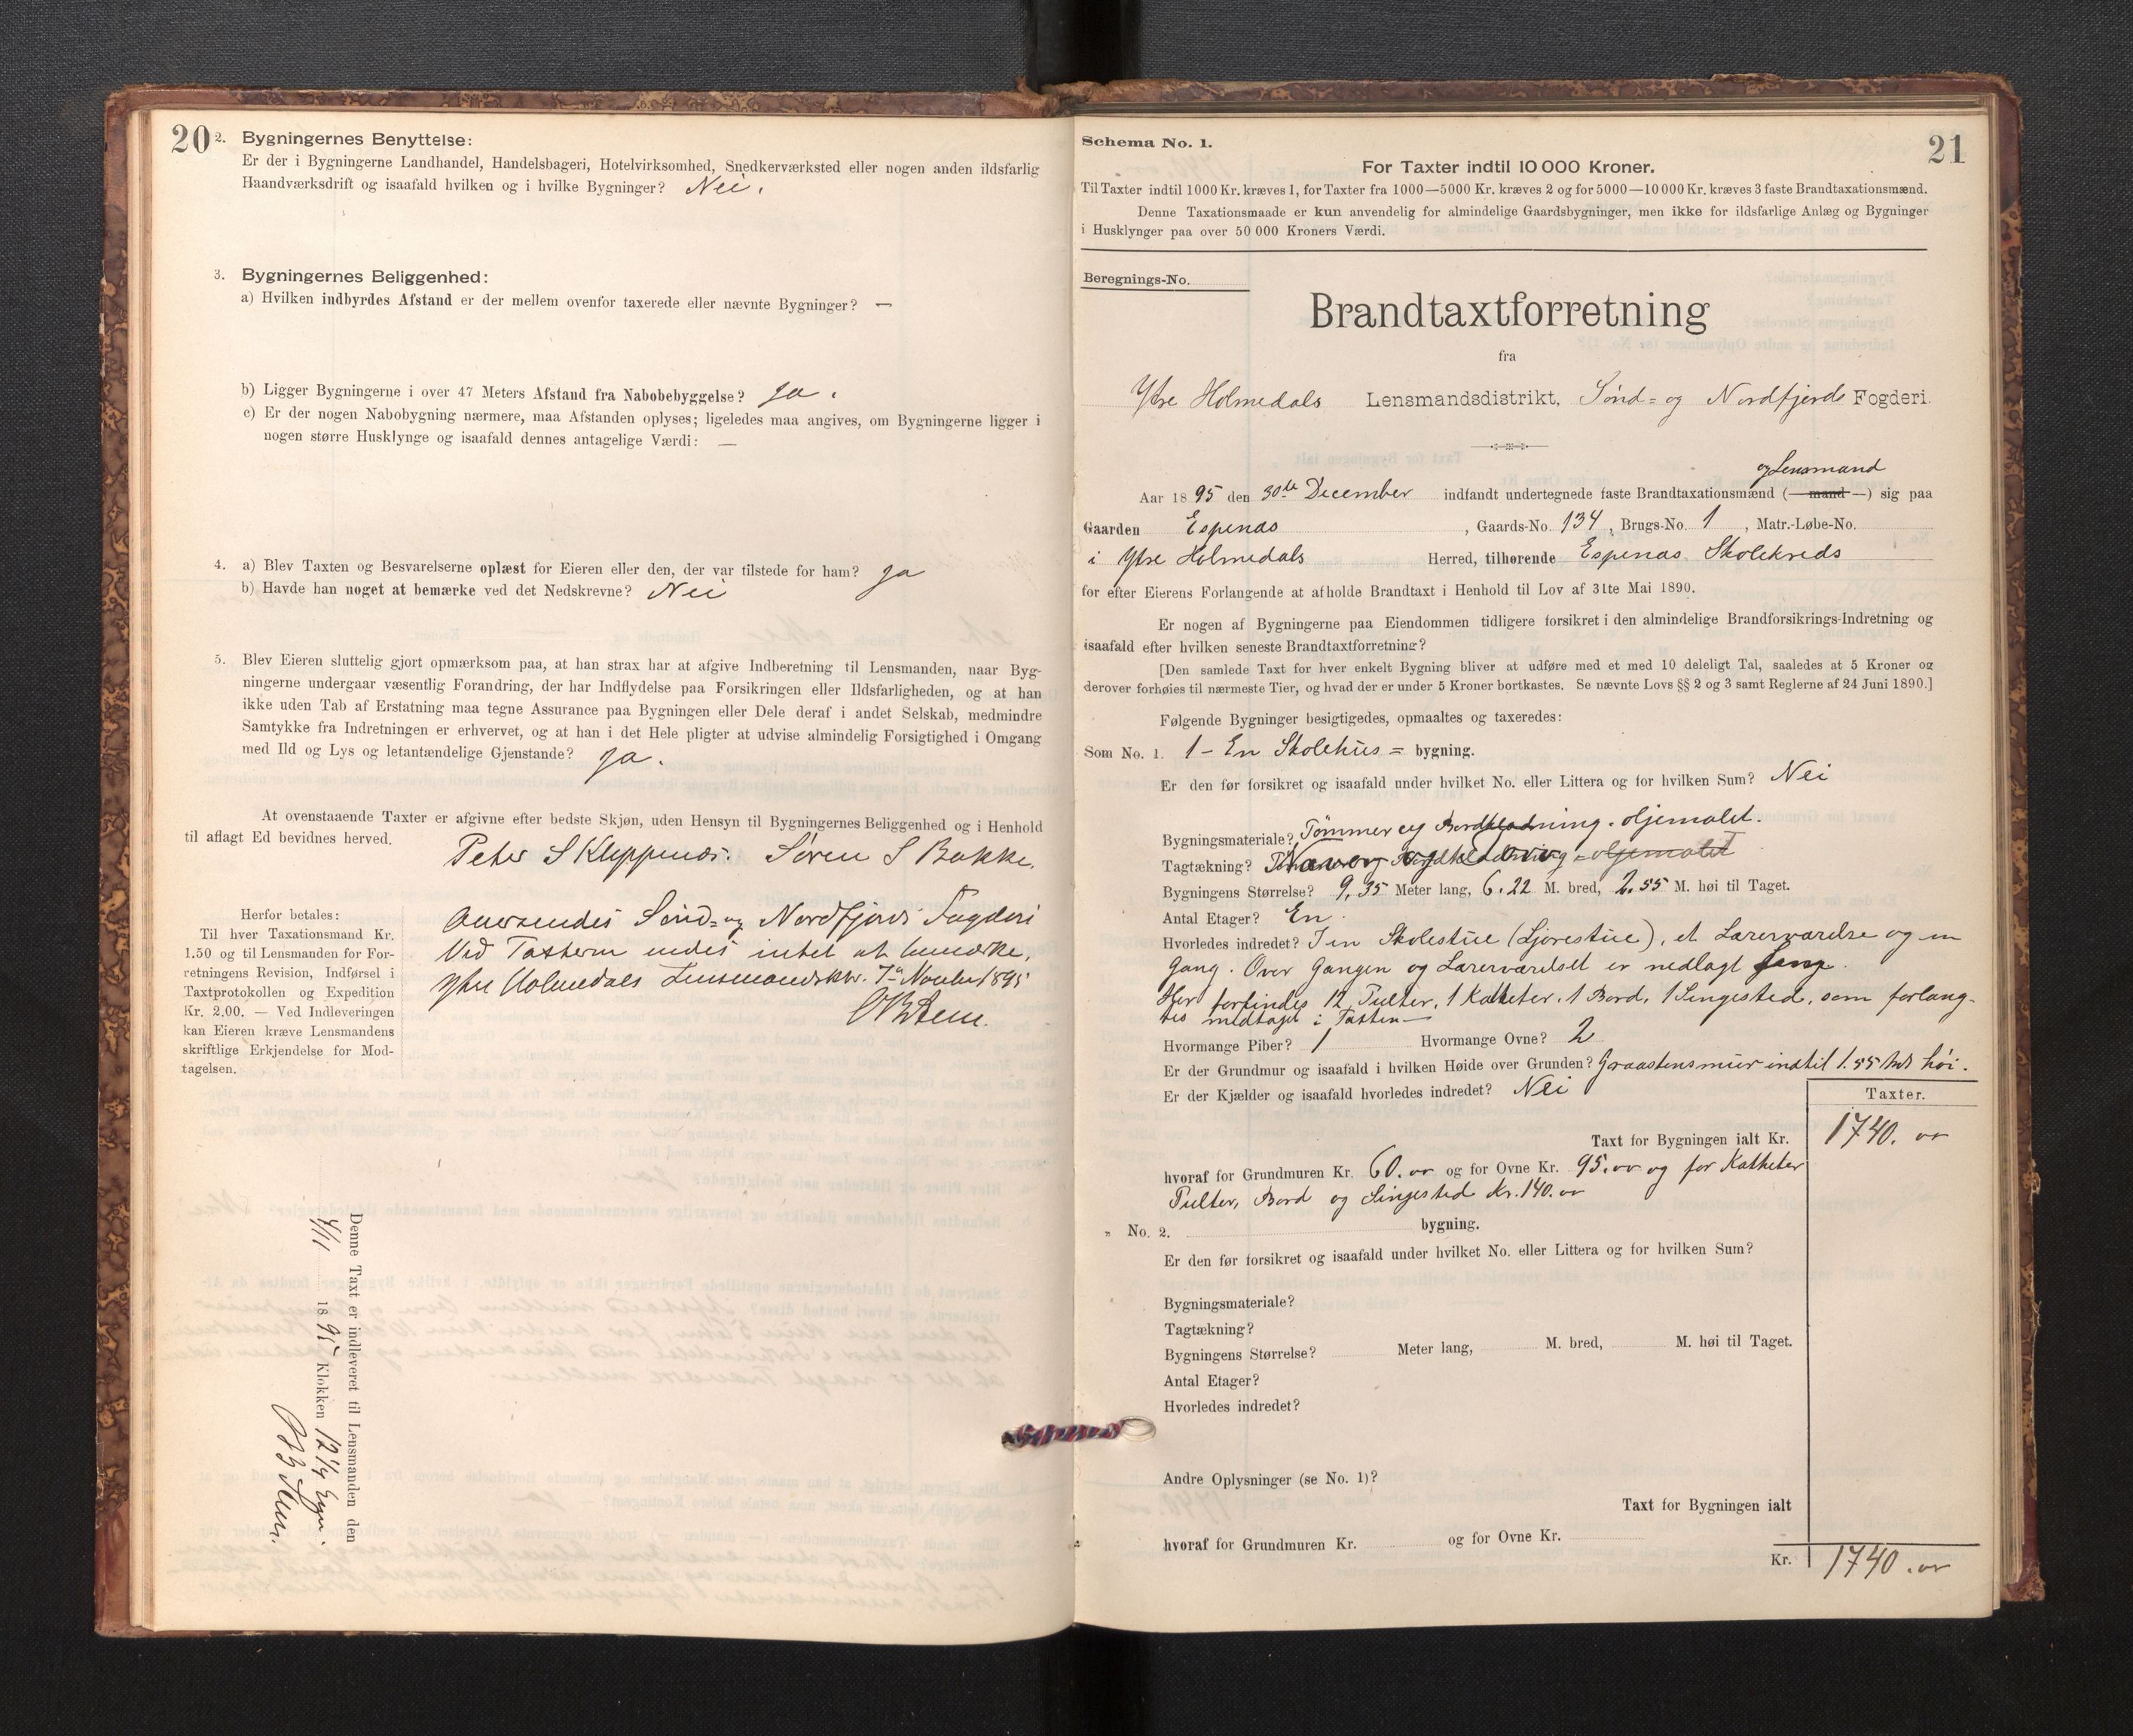 20
2. Bygningernes Benyttelse:
Er der i Bygningerne Landhandel, Handelsbageri, Hotelvirksomhed, Snedkerværksted eller nogen anden ildsfarlig
Haandværksdrift og isaafald hvilken og i hvilke Bygninger? Nei.
3. Bygningernes Beliggenhed:
a) Hvilken indbyrdes Afstand er der mellem ovenfor taxerede eller nævnte Bygninger? —
b) Ligger Bygningerne i over 47 Meters Afstand fra Nabobebyggelse? Ja.
c) Er der nogen Nabobygning nærmere, maa Afstanden oplyses; ligeledes maa angives, om Bygningerne ligger i
nogen større Husklynge og isaafald dennes antagelige Værdi: —
4. a) Blev Taxten og Besvarelserne oplæst for Eieren eller den, der var tilstede for ham? Ja
b) Havde han noget at bemærke ved det Nedskrevne? Nei
5. Blev Eieren sluttelig gjort opmærksom paa, at han strax har at afgive Indberetning til Lensmanden, naar Byg-
ningerne undergaar væsentlig Forandring, der har Indflydelse paa Forsikringen eller Ildsfarligheden, og at han
ikke uden Tab af Erstatning maa tegne Assurance paa Bygningen eller Dele deraf i andet Selskab, medmindre
Samtykke fra Indretningen er erhvervet, og at han i det Hele pligter at udvise almindelig Forsigtighed i Omgang
med Ild og Lys og letantændelige Gjenstande? Ja.
At ovenstaaende Taxter er afgivne efter bedste Skjøn, uden Hensyn til Bygningernes Beliggenhed og i Henhold
til aflagt Ed bevidnes herved.
Peter S Kleppenes. Søren S Bakke.
Herfor betales:
Til hver Taxationsmand Kr.
1.50 og til Lensmanden for For-
retningens Revision, Indførsel i
Taxtprotokollen og Expedition
Kr. 2.00. — Ved Indleveringen
kan Eieren kræve Lensmandens
skriftlige Erkjendelse for Mod-
tagelsen.
Oversendes Sønd- og Nordfjords Fogderi
Ved Taxten endes intet at bemærke,
Ytre Holmedals Lensmandsktr. 7de Novembr 1895
Denne Taxt er indleveret til Lensmanden den
4/11 1895 Klokken 12 1/4
21
Schema No. 1.
For Taxter indtil 10 000 Kroner.
Til Taxter indtil 1000 Kr. kræves 1, for Taxter fra 1000—5000 Kr. kræves 2 og for 5000—10 000 Kr. kræves 3 faste Brandtaxationsmænd.
Denne Taxationsmaade er kun anvendelig for almindelige Gaardsbygninger, men ikke for ildsfarlige Anlæg og Bygninger
i Husklynger paa over 50 000 Kroners Værdi.
Beregnings-No.
Brandtaxtforretning
fra
Ytre Holmedals Lensmandsdistrikt, Sønd- og Nordfjords Fogderi.
og Lensmand
Aar 1895 den 30te December indfandt undertegnede faste Brandtaxationsmænd (— mand —) sig paa
Gaarden Espenæs, Gaards-No. 134, Brugs-No. 1, Matr.-Løbe-No.
i Ytre Holmedals Herred, tilhørende Espenæs Skolekreds
for efter Eierens Forlangende at afholde Brandtaxt i Henhold til Lov af 31te Mai 1890.
Er nogen af Bygningerne paa Eiendommen tidligere forsikret i den almindelige Brandforsikrings-Indretning og
isaafald efter hvilken seneste Brandtaxtforretning?
[Den samlede Taxt for hver enkelt Bygning bliver at udføre med et med 10 deleligt Tal, saaledes at 5 Kroner og
derover forhøies til nærmeste Tier, og hvad der er under 5 Kroner bortkastes. Se nævnte Lovs §§ 2 og 3 samt Reglerne af 24 Juni 1890.]
Følgende Bygninger besigtigedes, opmaaltes og taxeredes:
Som No. 1. 1 - En Skolehus = bygning.
Er den før forsikret og isaafald under hvilket No. eller Littera og for hvilken Sum? Nei
Bygningsmateriale? Tømmer og Bordklædning. oljemalet.
Tagtækning? Næver og Torv oljemalet
Bygningens Størrelse? 9,35 Meter lang, 6.22 M. bred, 2.55 M. høi til Taget.
Antal Etager? En.
Hvorledes indredet? I en Skolestue, et Lærerværelse og en
Gang. Over Gangen og Lærerværelset er nedlagt
Her forfindes 12 Pulter, 1 Katheter, 1 Bord, 1 Singested, som forlang-
tes medtaget i Taxten —
Hvormange Piber? 1 Hvormange Ovne? 2
Er der Grundmur og isaafald i hvilken Høide over Grunden? Graastensmur indtil 1.55 Mtr høi.
Er der Kjælder og isaafald hvorledes indredet? Nei
Taxter.
Taxt for Bygningen ialt Kr. 1740. 00
hvoraf for Grundmuren Kr. 60.00 og for Ovne Kr. 95.00 og for Katheter
Pulter, Bord og Singested Kr. 140.00
„ No. 2. bygning.
Er den før forsikret og isaafald under hvilket No. eller Littera og for hvilken Sum?
Bygningsmateriale?
Tagtækning?
Bygningens Størrelse? Meter lang, M. bred, M. høi til Taget.
Antal Etager?
Hvorledes indredet?
Andre Oplysninger (se No. 1)?
Taxt for Bygningen ialt
hvoraf for Grundmuren Kr. og for Ovne Kr.
Kr. 1740.00